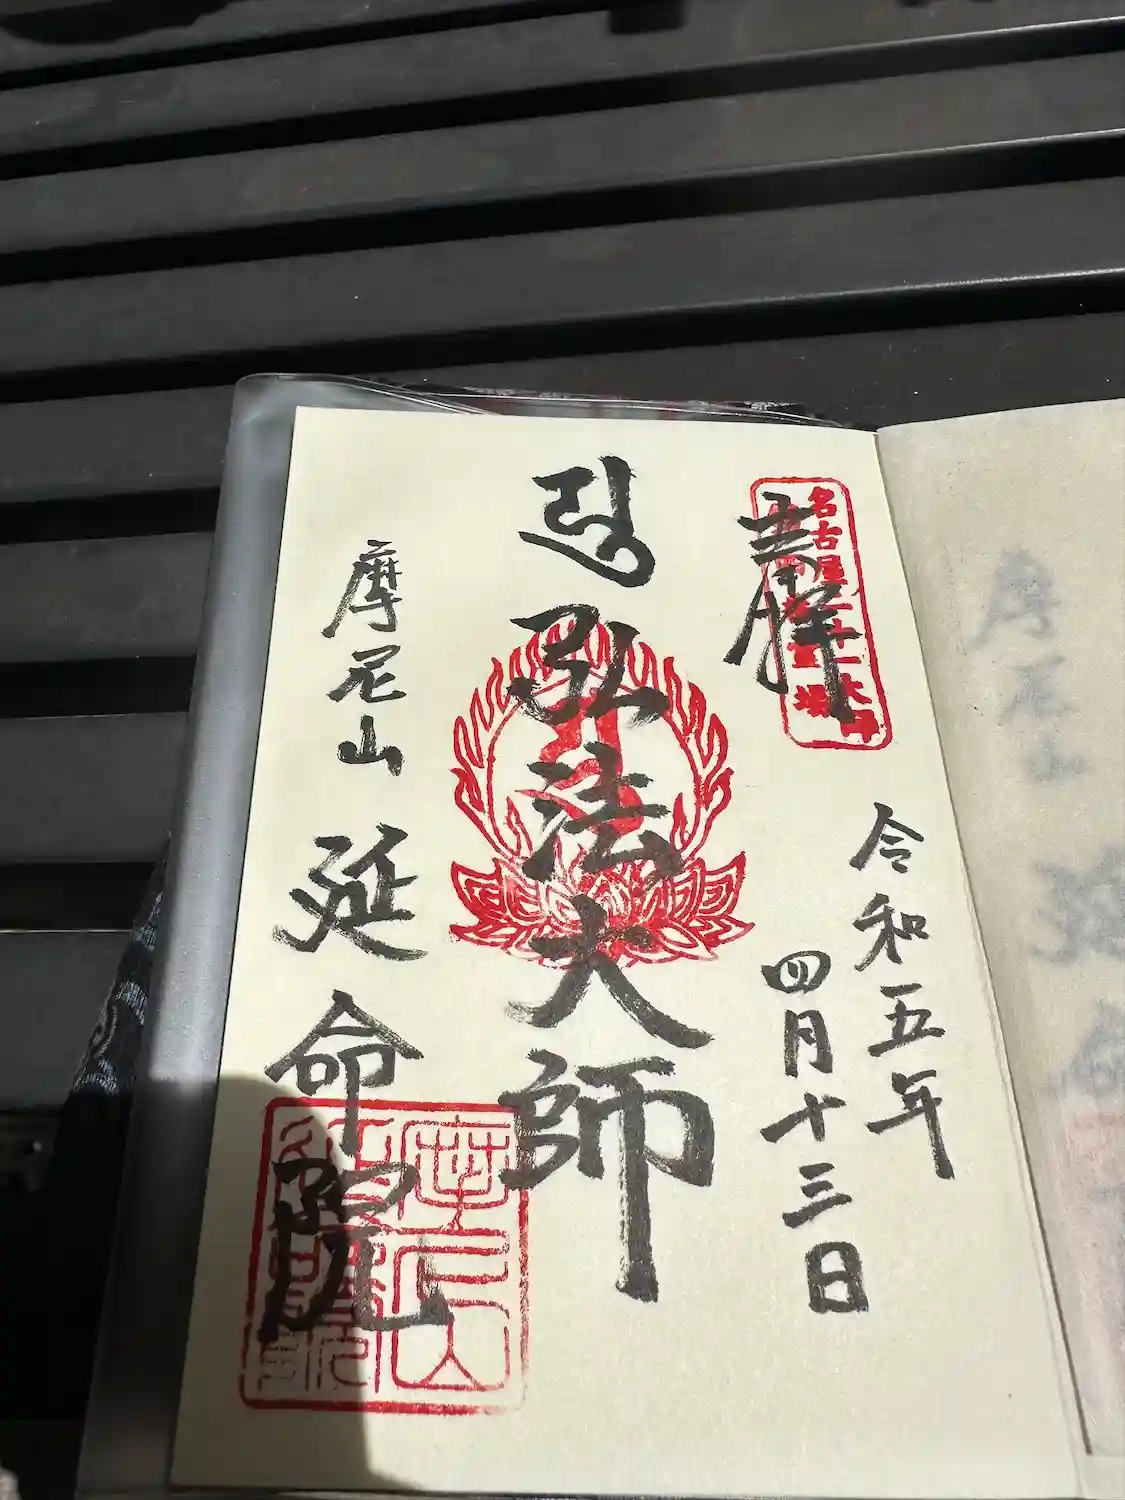 奉拝
名古屋二十一大師
霊場
令和五年
四月十三日
弘法大師
摩尼山 延命院